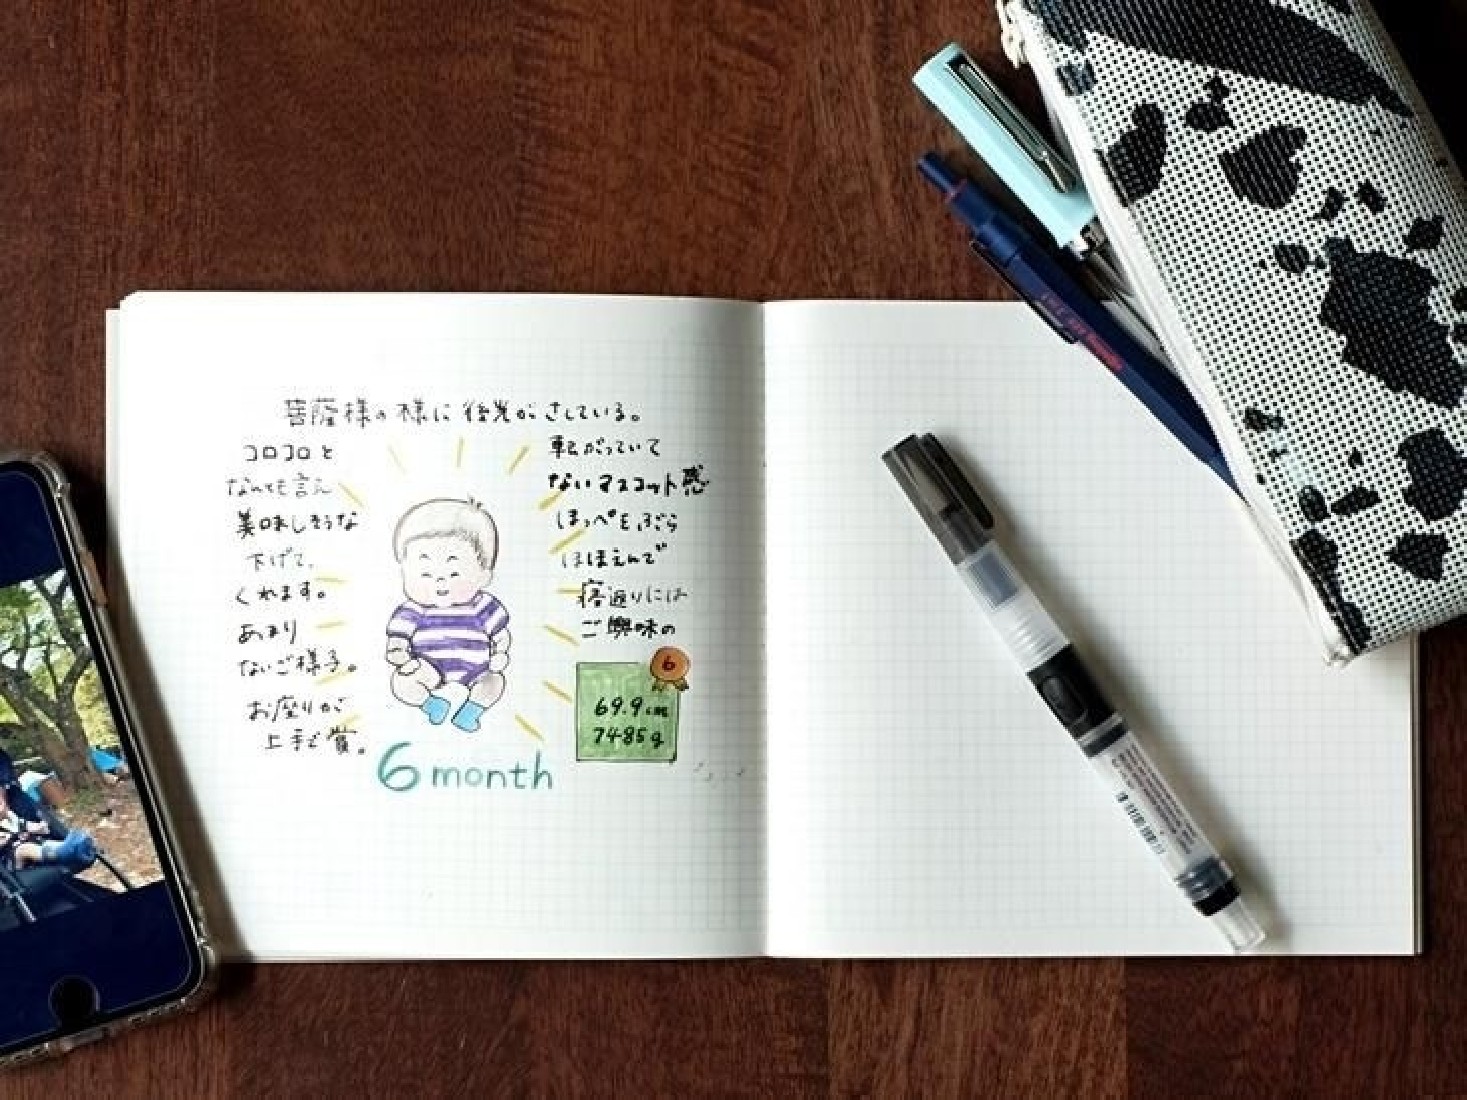 菩薩様の様に後光がさしている。
コロコロと 転がっていて
なんとも言え ないマスコット感
美味しそうな ほっぺをぶら
下げて、 ほほえんで
くれます。 寝返りには
あまり ご興味の
ないご様子。
お座りが
上手で賞。
6
69.9cm
7485g
6 month